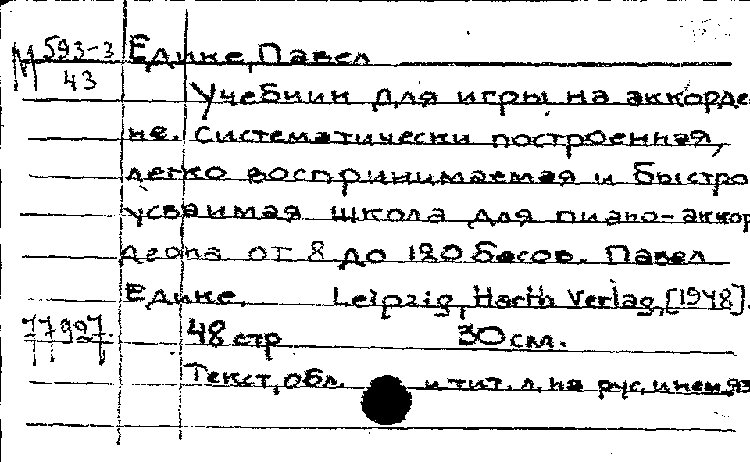 М 593-3 Едике, Павел
43
Учебник для игры на аккорде
не. Систематически построенная,
легко воспринимаемая и быстро
усваимая школа для пиано-аккор
деона от 8 до 120 басов. Павел
Едике. Leipzig, Harth Verlag, [1948].
77997 48 стр 30 см.
Текст, обл. и тит. л. на рус. и нем яз